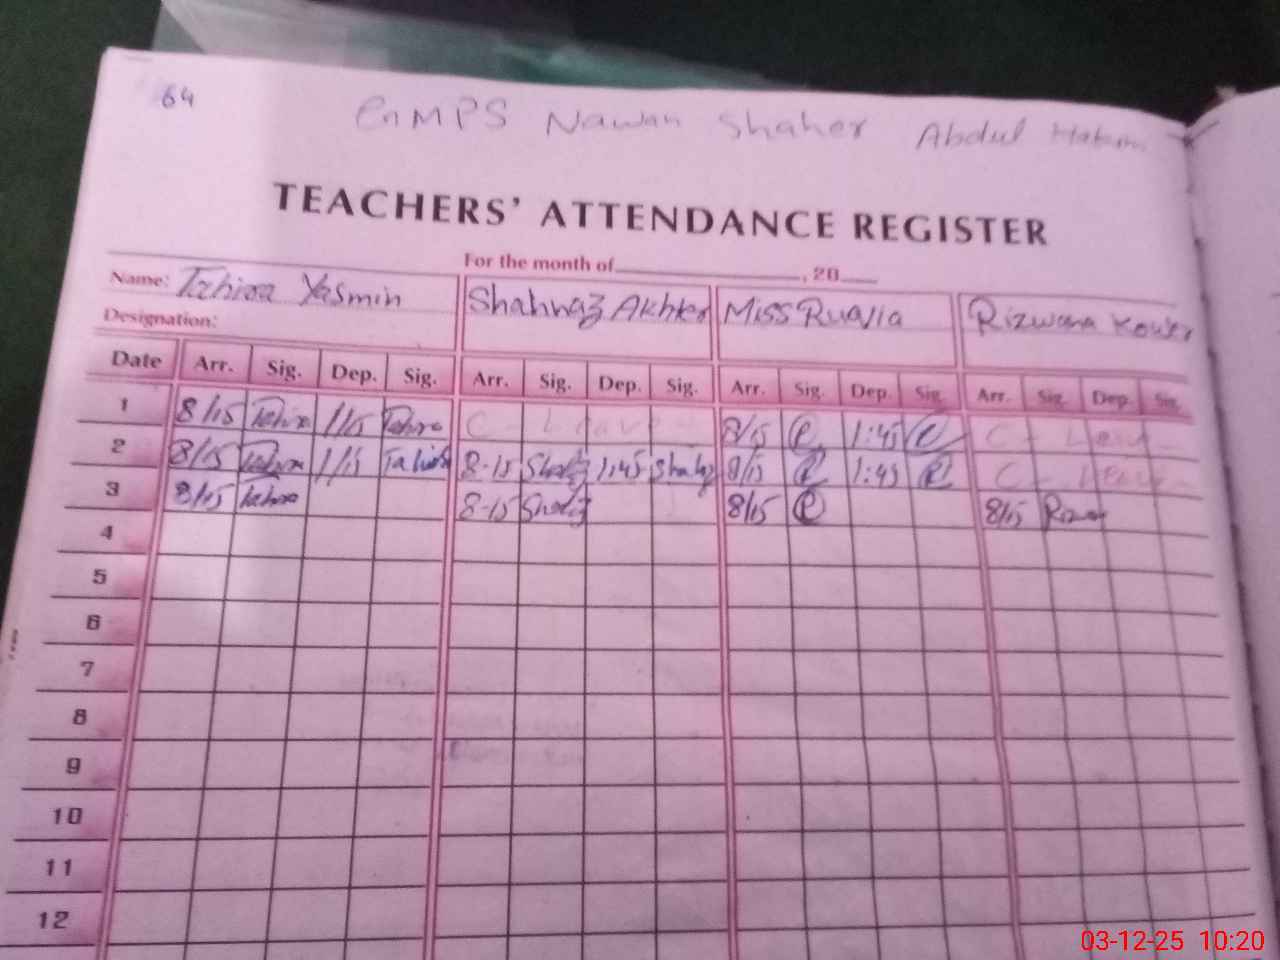 64
GnMPS Nawan Shaher Abdul Hakim
TEACHERS' ATTENDANCE REGISTER
For the month of , 20
Name: Tahira Yasmin Shahnaz Akhter Miss Ruqia Rizwana Kower
Designation:
Date Arr. Sig. Dep. Sig. Arr. Sig. Dep. Sig. Arr. Sig. Dep. Sig. Arr. Sig. Dep. Sig.
1 8/15 Tahira 1/15 Tahira C - Leave 8/15 R 1:45 R C - Leave
2 8/15 Tahira 1/15 Tahira 8-15 Shahz 1:45 Shahz 8/15 R 1:45 R C - Leave
3 8/15 Tahira 8-15 Shahz 8/15 R 8/15
4
5
6
7
8
9
10
11
12
03-12-25 10:20